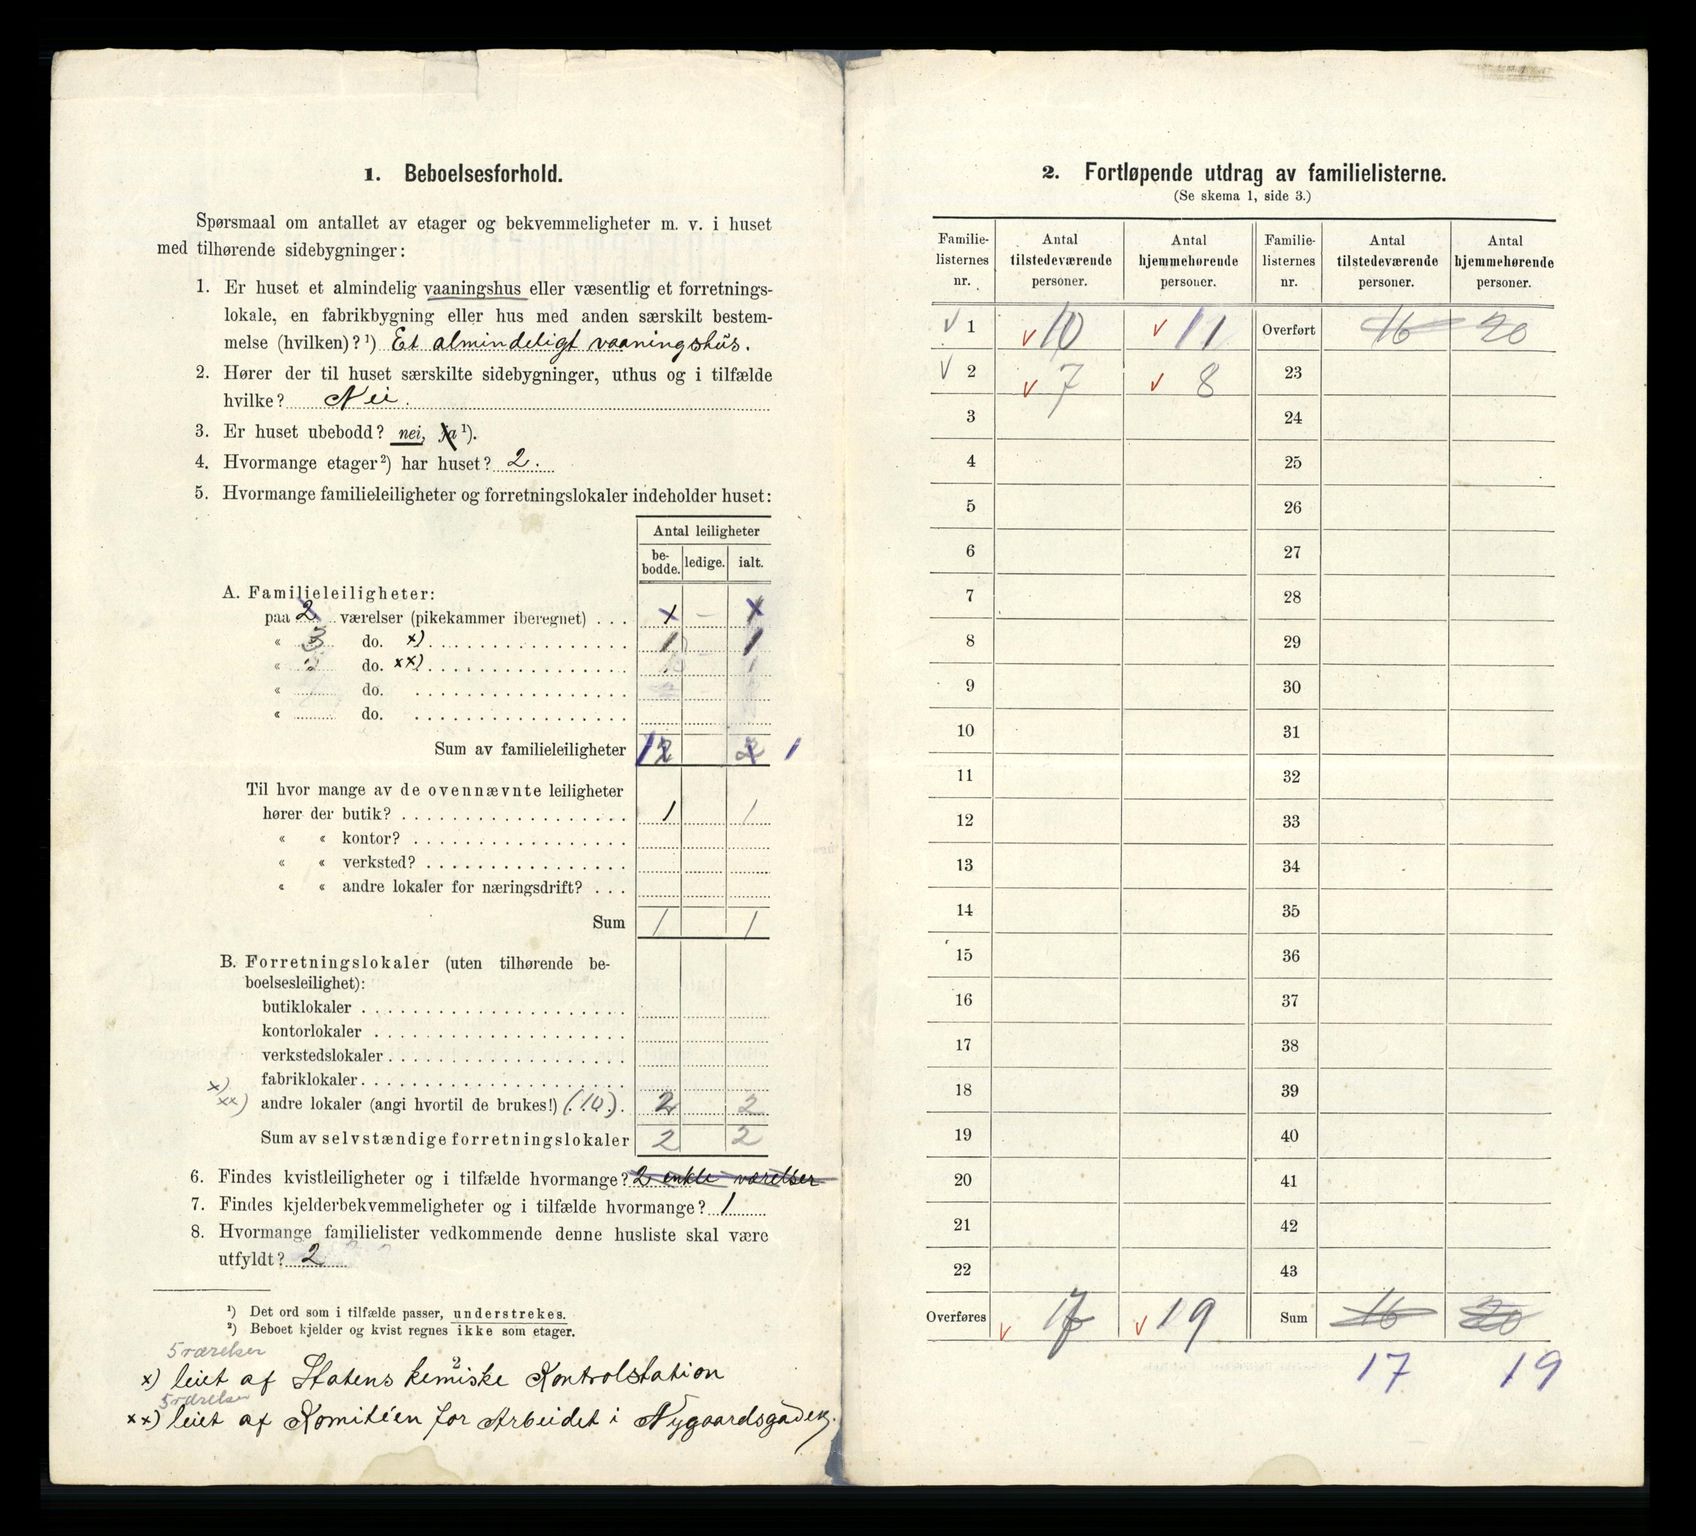 1. Beboelsesforhold.
Spørsmaal om antallet av etager og bekvemmeligheter m. v. i huset
med tilhørende sidebygninger:
1. Er huset et almindelig vaaningshus eller væsentlig et forretnings-
lokale, en fabrikbygning eller hus med anden særskilt bestem-
melse (hvilken)?¹) Et almindeligt vaaningshus.
2. Hører der til huset særskilte sidebygninger, uthus og i tilfælde
hvilke? Nei.
3. Er huset ubebodd? nei, ja¹).
4. Hvormange etager²) har huset? 2.
5. Hvormange familieleiligheter og forretningslokaler indeholder huset:
Antal leiligheter
be-
bodde. ledige. ialt.
A. Familieleiligheter:
paa 2 værelser (pikekammer iberegnet) . . . x – x
« 3 do. x) 1 1
« 2 do. xx) 1
« do.
« do.
Sum av familieleiligheter 1 2 2 1
Til hvor mange av de ovennævnte leiligheter
hører der butik? 1 1
« « kontor?
« « verksted?
« « andre lokaler for næringsdrift? . . .
Sum 1 1
B. Forretningslokaler (uten tilhørende be-
boelsesleilighet):
butiklokaler
kontorlokaler
verkstedslokaler
fabriklokaler
x)
xx) andre lokaler (angi hvortil de brukes!) (10). 2 2
Sum av selvstændige forretningslokaler 2 2
6. Findes kvistleiligheter og i tilfælde hvormange? 2 enkle værelser
7. Findes kjelderbekvemmeligheter og i tilfælde hvormange? 1
8. Hvormange familielister vedkommende denne husliste skal være
utfyldt? 2
¹) Det ord som i tilfælde passer, understrekes.
²) Beboet kjelder og kvist regnes ikke som etager.
5 værelser
x) leiet af Statens kemiske 2 Kontrolstation
5 værelser
xx) leiet af Komitéen for Arbeidet i Nygaardsgaden.
2. Fortløpende utdrag av familielisterne.
(Se skema 1, side 3.)
Familie- Antal Antal Familie- Antal Antal
listernes tilstedeværende hjemmehørende listernes tilstedeværende hjemmehørende
nr. personer. personer. nr. personer. personer.
V 1 v 10 v 11 Overført 16 20
V 2 v 7 v 8 23
3 24
4 25
5 26
6 27
7 28
8 29
9 30
10 31
11 32
12 33
13 34
14 35
15 36
16 37
17 38
18 39
19 40
20 41
21 42
22 43
Overføres v 17 v 19 Sum 16 20
17 19